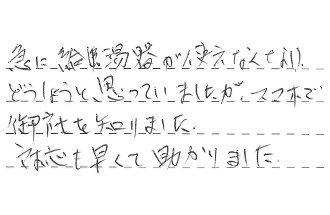 急に給湯器が使えなくなり
どうしようと、思っていましたが、スマホで
御社を知りました.
対応も早くて助かりました.